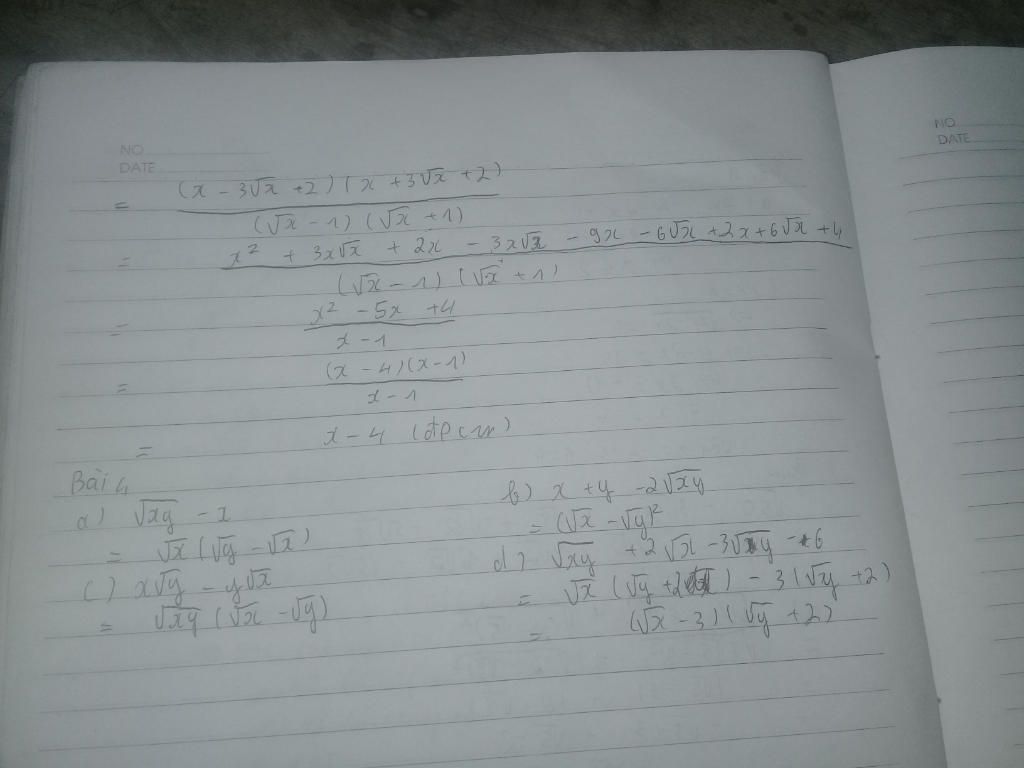 NO
DATE
NO
DATE
= (x - 3√x + 2)(x + 3√x + 2)
(√x - 1)(√x + 1)
= x² + 3x√x + 2x - 3x√x - 9x - 6√x + 2x + 6√x + 4
(√x - 1)(√x + 1)
= x² - 5x + 4
x - 1
= (x - 4)(x - 1)
x - 1
= x - 4 (đpcm)
Bài 4
a) √xy - x
= √x (√y - √x)
b) x + y - 2√xy
= (√x - √y)²
c) x√y - y√x
= √xy (√x - √y)
d) √xy + 2√x - 3√y - 6
= √x (√y + 2) - 3(√y + 2)
= (√x - 3)(√y + 2)